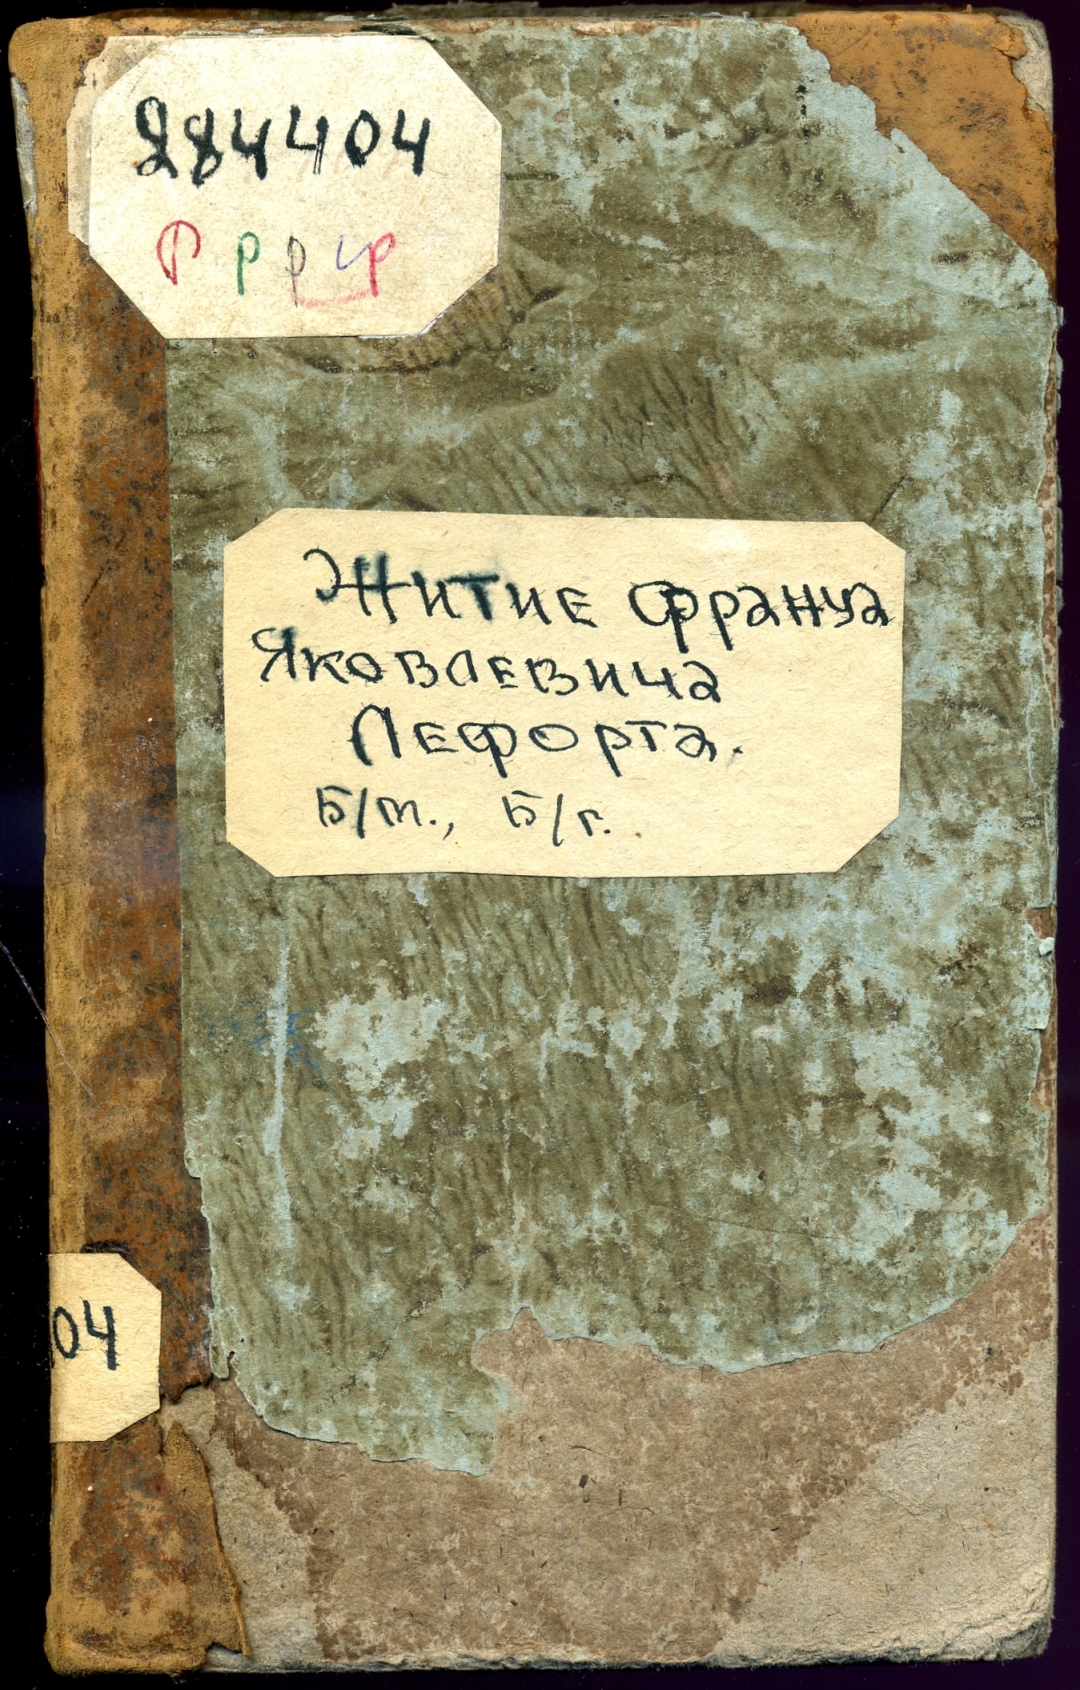 284404
р р р р
Житие Франца
Яковлевича
Лефорта.
Б/м., Б/г.
04